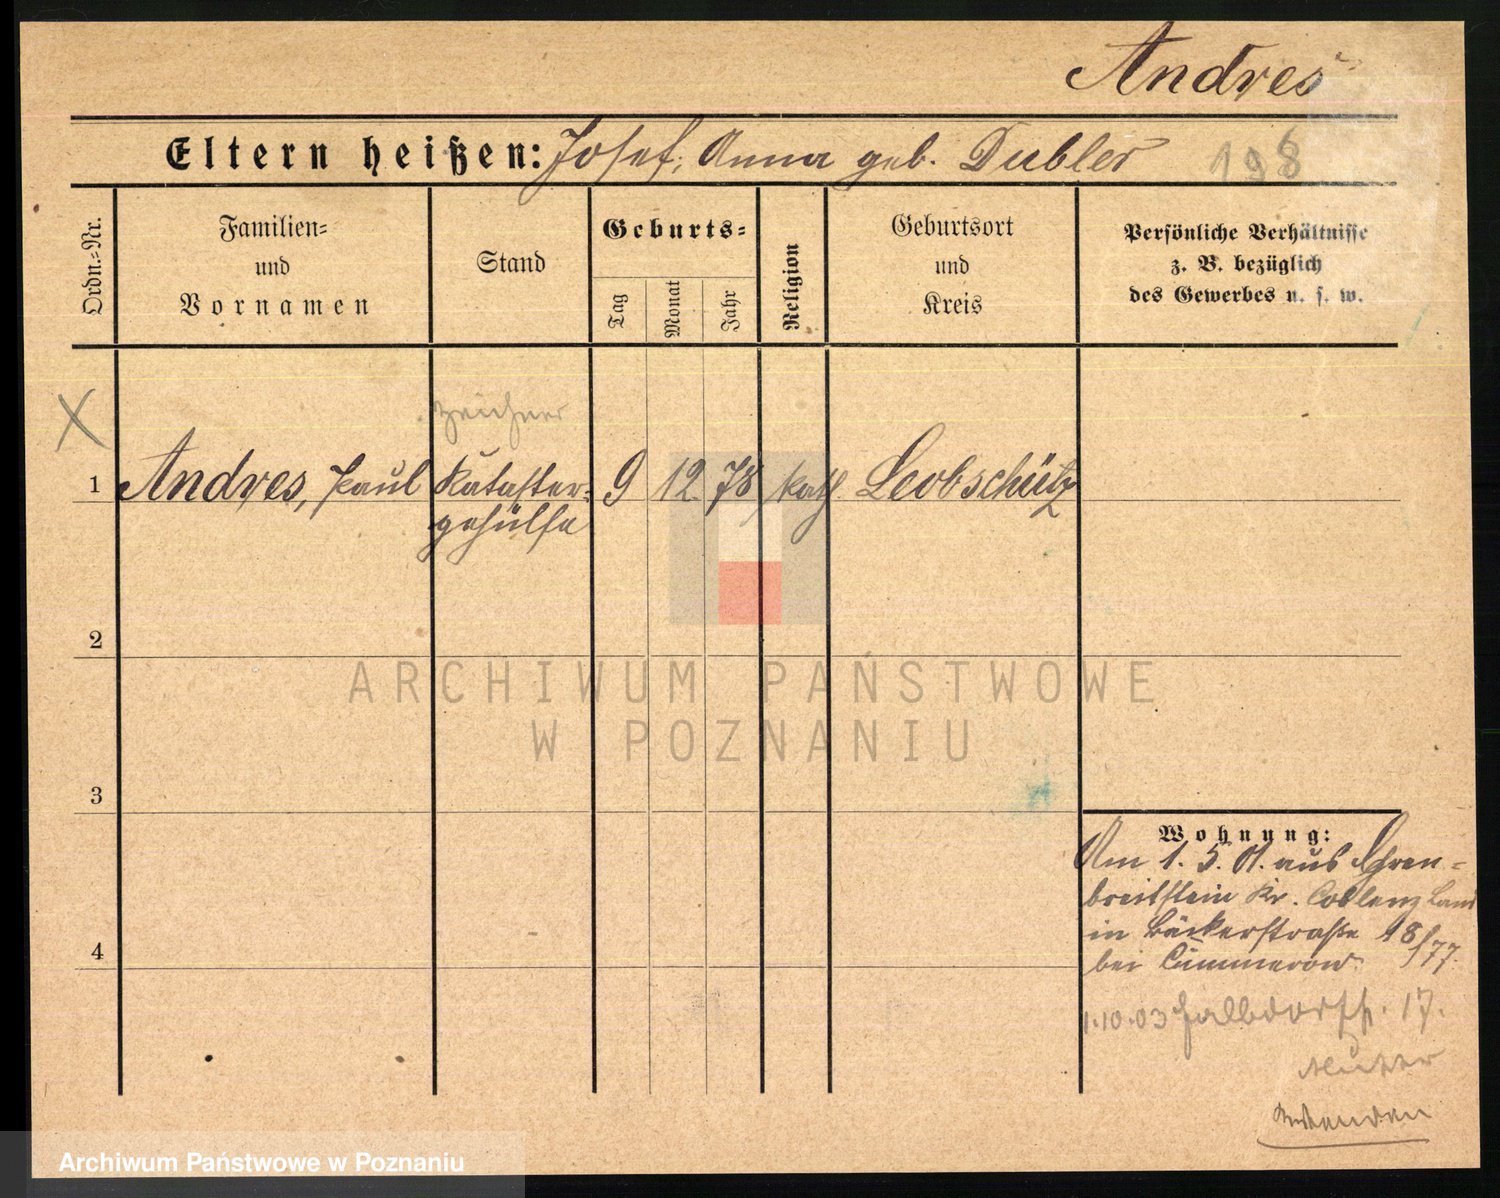 Andres
Eltern heißen: Josef, Anna geb. Dubler
198
Ordn.-Nr.
Familien-
und
Vornamen
Stand
Geburts-
Tag
Monat
Jahr
Religion
Geburtsort
und
Kreis
Persönliche Verhältnisse
z. B. bezüglich
des Gewerbes u. s. w.
X
Zeichner
1 Andres, Paul Kataster- 9 12. 78 kath. Leobschütz
gehülfe
2
ARCHIWUM PAŃSTWOWE
W POZNANIU
3
Wohnung:
Am 1. 5. 01. aus Ehren-
breitstein Kr. Coblenz Land
in Bäckerstraße 18/77.
4
bei Cummerow
1.10.03 Halbdorfstr. 17.
Archiwum Państwowe w Poznaniu